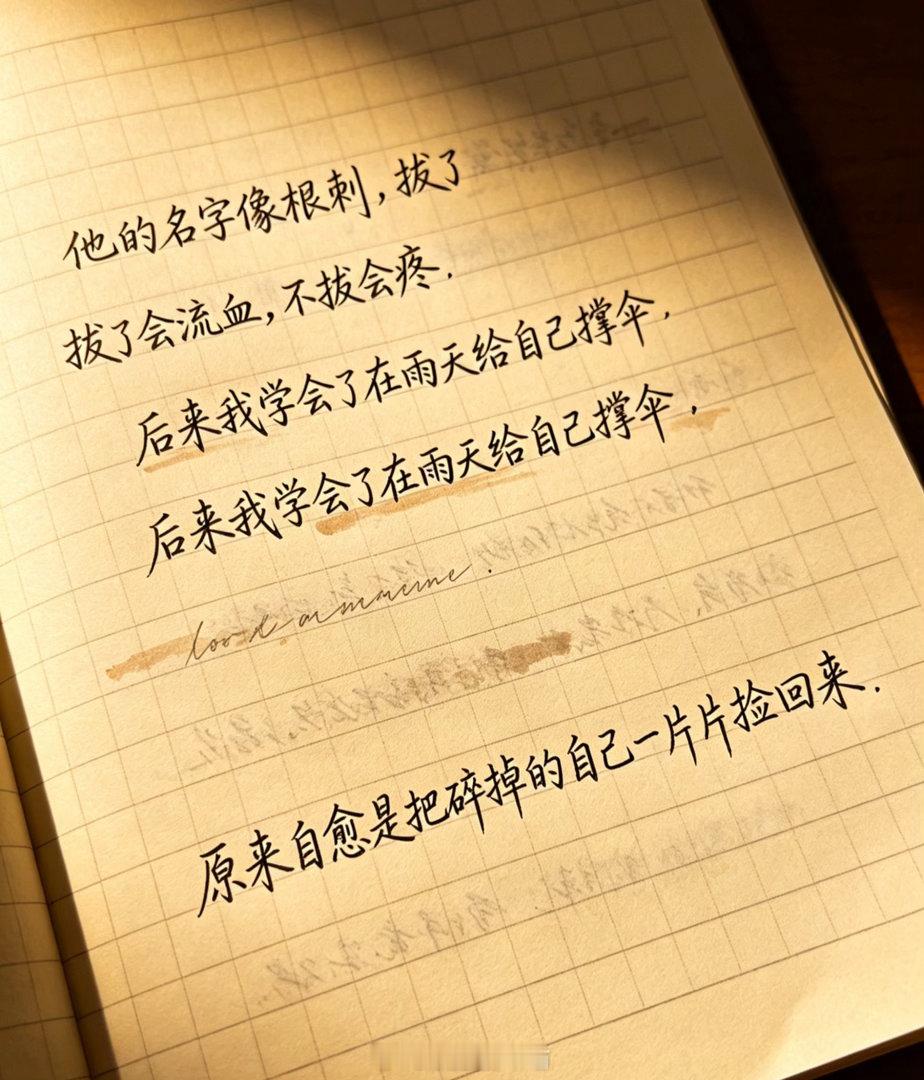 他的名字像根刺,拔了
拔了会流血,不拔会疼.
后来我学会了在雨天给自己撑伞,
后来我学会了在雨天给自己撑伞,
原来自愈是把碎掉的自己一片片捡回来.